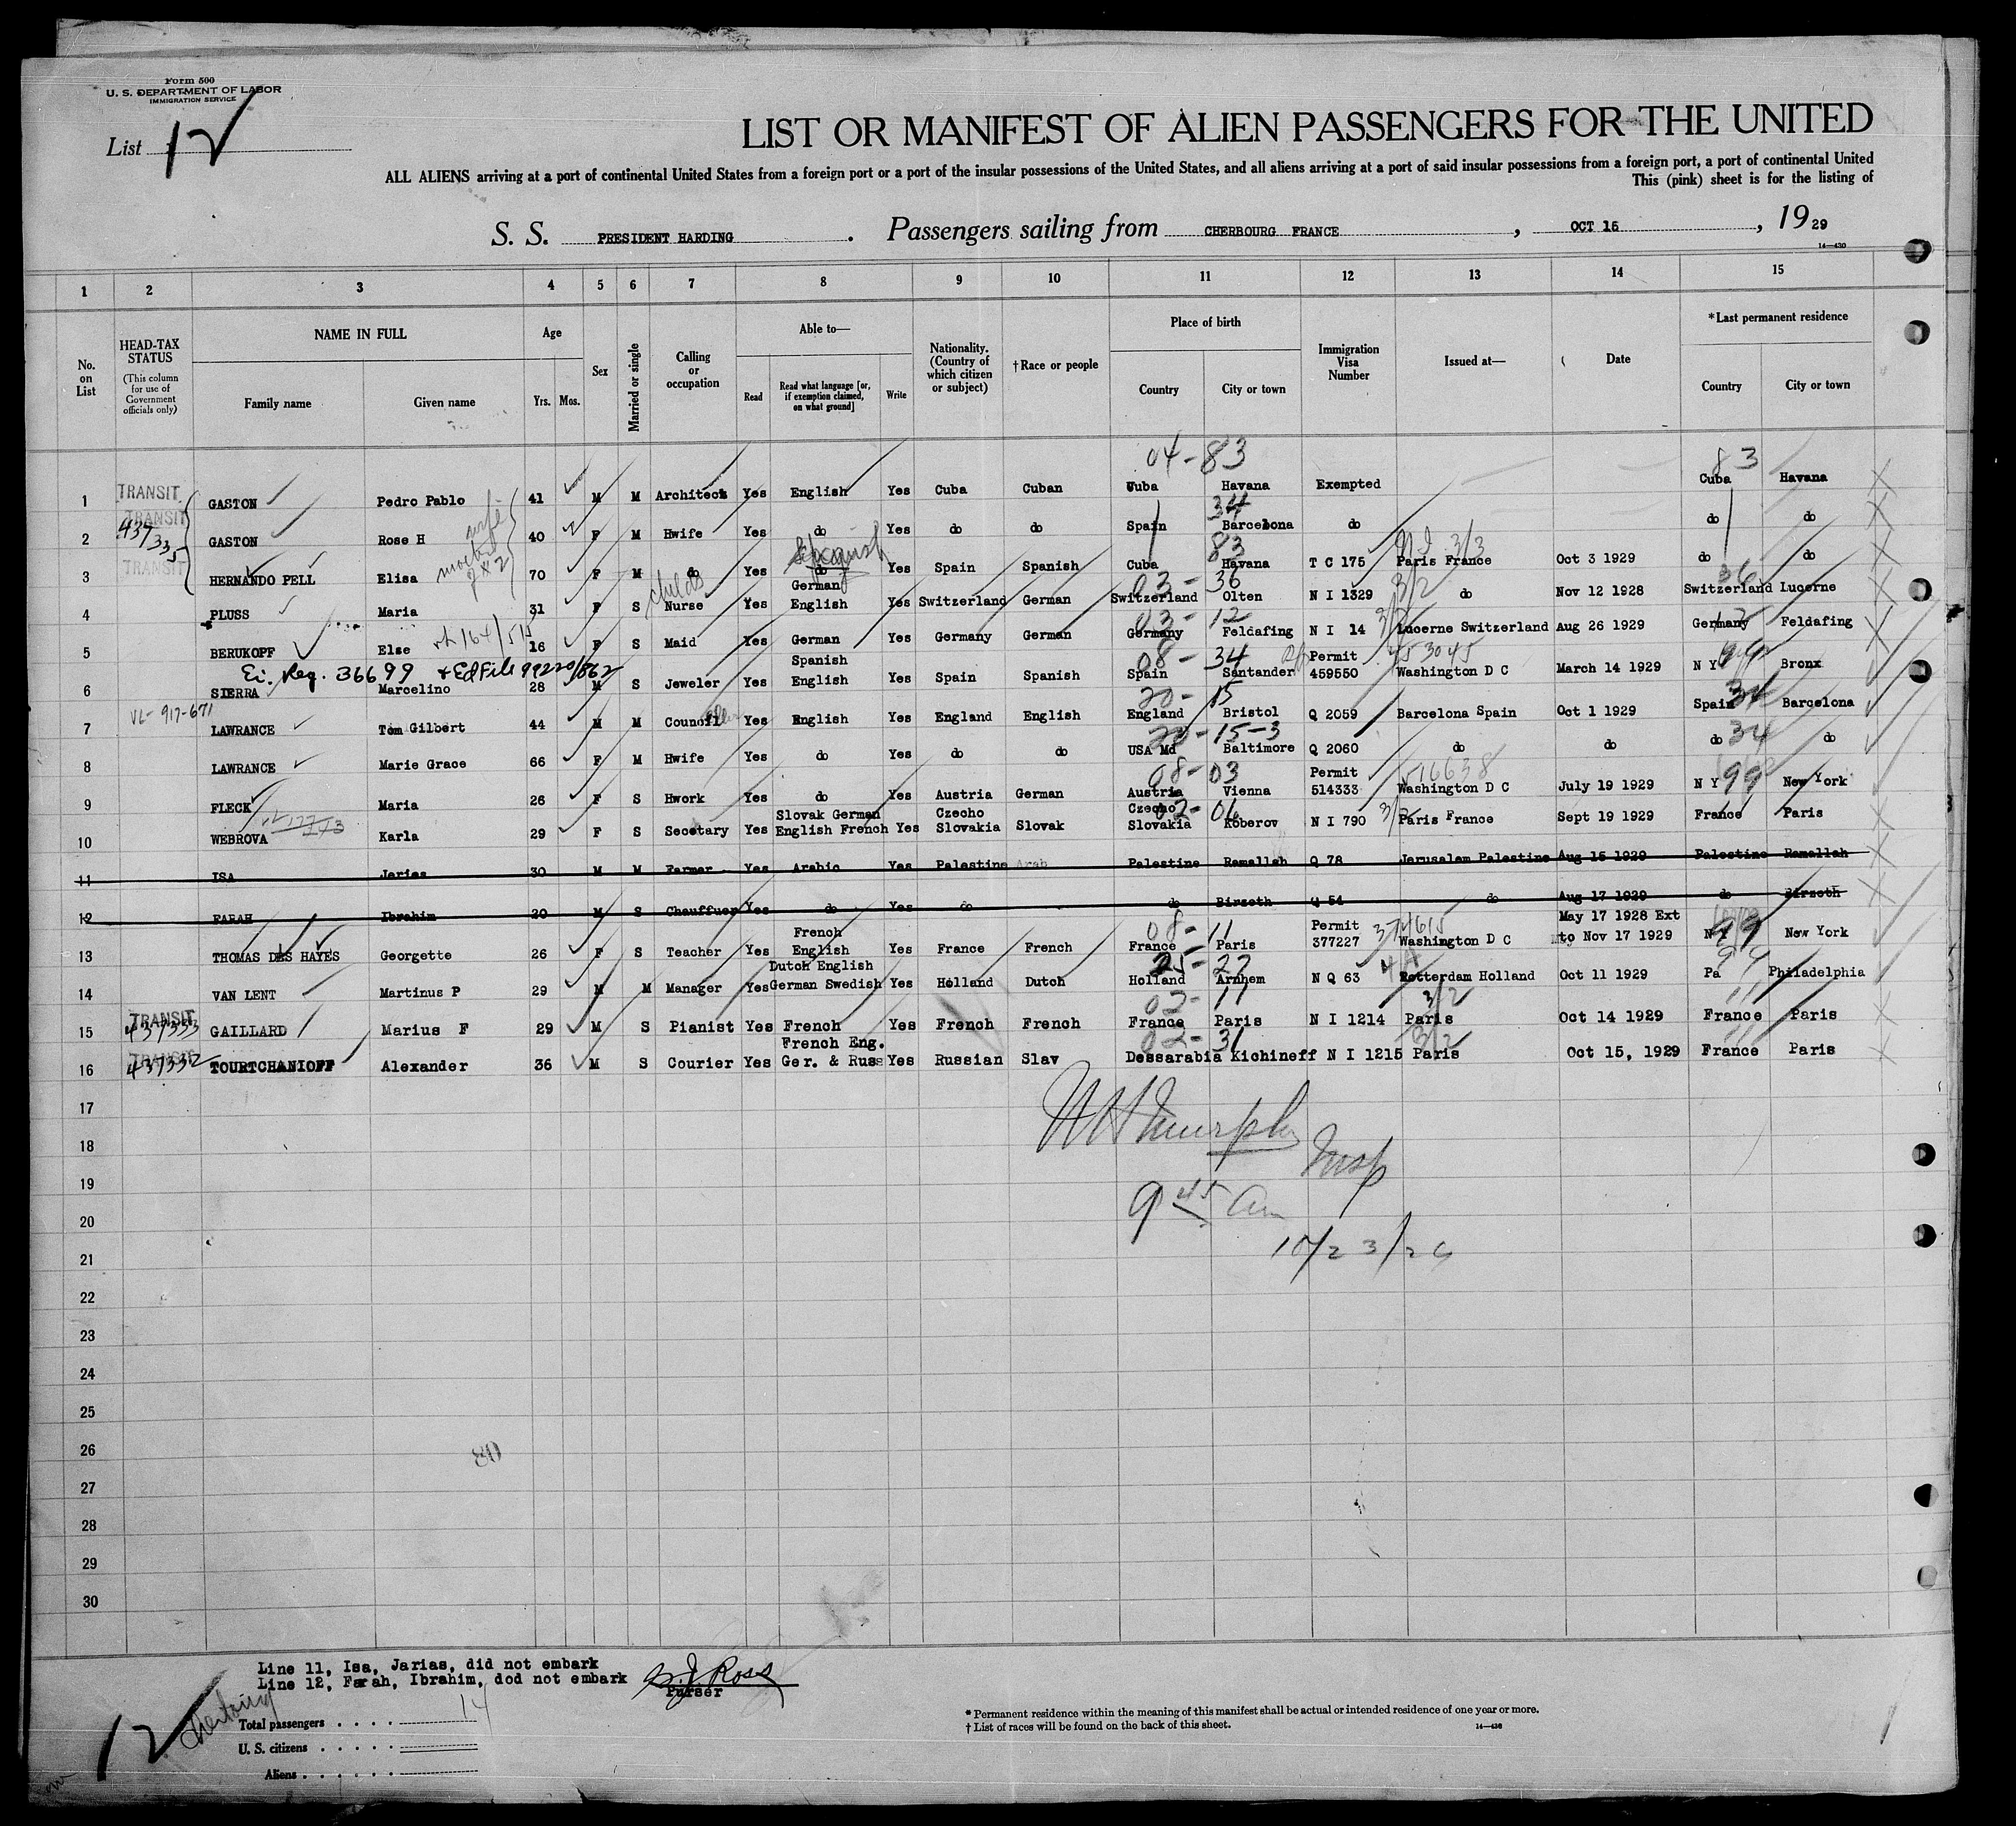 Form 500
U. S. DEPARTMENT OF LABOR
IMMIGRATION SERVICE
List 12
LIST OR MANIFEST OF ALIEN PASSENGERS FOR THE UNITED
ALL ALIENS arriving at a port of continental United States from a foreign port or a port of the insular possessions of the United States, and all aliens arriving at a port of said insular possessions from a foreign port, a port of continental United
This (pink) sheet is for the listing of
S. S. PRESIDENT HARDING . Passengers sailing from CHERBOURG FRANCE , OCT 15 , 19 29
14-430
1 2 3 4 5 6 7 8 9 10 11 12 13 14 15
No. on List
HEAD-TAX STATUS (This column for use of Government officials only)
NAME IN FULL Family name Given name
Age Yrs. Mos.
Sex
Married or single
Calling or occupation
Able to— Read Read what language [or, if exemption claimed, on what ground] Write
Nationality. (Country of which citizen or subject)
†Race or people
Place of birth Country City or town
Immigration Visa Number
Issued at—
Date
*Last permanent residence Country City or town
04-83 83
1 TRANSIT GASTON Pedro Pablo 41 M M Architect Yes English Yes Cuba Cuban Cuba Havana Exempted Cuba Havana
34
2 TRANSIT 437335 GASTON Rose H wife 40 F M Hwife Yes do Yes do do Spain Barcelona do do do
Spanish 83 NI 3/3
3 TRANSIT HERNANDO PELL Elisa 70 F M do Yes do Yes Spain Spanish Cuba Havana T C 175 Paris France Oct 3 1929 do do
childs German 03-36 3/2 36
4 PLUSS Maria 31 F S Nurse Yes English Yes Switzerland German Switzerland Olten N I 1329 do Nov 12 1928 Switzerland Lucerne
03-12 3/2 12
5 BERUKOFF Else 16 F S Maid Yes German Yes Germany German Germany Feldafing N I 14 Lucerne Switzerland Aug 26 1929 Germany Feldafing
Ei. Reg. 36699 + Ed File 99220/862 Spanish 08-34 Permit 99
6 SIERRA Marcelino 28 M S Jeweler Yes English Yes Spain Spanish Spain Santander 459550 Washington D C March 14 1929 N Y Bronx
VL-917-671 20-15 34
7 LAWRANCE Tom Gilbert 44 M M Council Yes English Yes England English England Bristol Q 2059 Barcelona Spain Oct 1 1929 Spain Barcelona
20-15-3 34
8 LAWRANCE Marie Grace 66 F M Hwife Yes do Yes do do USA Md Baltimore Q 2060 do do do do
08-03 Permit 516638 99
9 FLECK Maria 26 F S Hwork Yes do Yes Austria German Austria Vienna 514333 Washington D C July 19 1929 N Y New York
Slovak German Czecho Czecho 02-06 3/2
10 WEBROVA Karla 29 F S Secetary Yes English French Yes Slovakia Slovak Slovakia Koberov N I 790 Paris France Sept 19 1929 France Paris
11 ISA Jarias 30 M M Farmer Yes Arabic Yes Palestine Arab Palestine Ramallah Q 78 Jerusalem Palestine Aug 15 1929 Palestine Ramallah
12 FARAH Ibrahim 20 M S Chauffuer Yes do Yes do do Birzeth Q 54 do Aug 17 1929 do Birzeth
French 08-11 Permit 374615 May 17 1928 Ext 99
13 THOMAS DES HAYES Georgette 26 F S Teacher Yes English Yes France French France Paris 377227 Washington D C to Nov 17 1929 N Y New York
Dutch English 25-27 99
14 VAN LENT Martinus P 29 M M Manager Yes German Swedish Yes Holland Dutch Holland Arnhem N Q 63 Rotterdam Holland Oct 11 1929 Pa Philadelphia
02-11 3/2 11
15 TRANSIT 437333 GAILLARD Marius F 29 M S Pianist Yes French Yes French French France Paris N I 1214 Paris Oct 14 1929 France Paris
French Eng. 02-31 3/2 11
16 TRANSIT 437332 TOURTCHANIOFF Alexander 36 M S Courier Yes Ger. & Russ Yes Russian Slav Dessarabia Kichineff N I 1215 Paris Oct 15, 1929 France Paris
17
18
19
20
21
22
23
24
25
26
27
28
29
30
Murphy
Insp
9 45 am
10/23/29
80
Line 11, Isa, Jarias, did not embark
Line 12, Farah, Ibrahim, dod not embark
Ross
Purser
12
Total passengers . . . . 14
U. S. citizens . . . . .
Aliens . . . . . .
* Permanent residence within the meaning of this manifest shall be actual or intended residence of one year or more.
† List of races will be found on the back of this sheet. 14-430